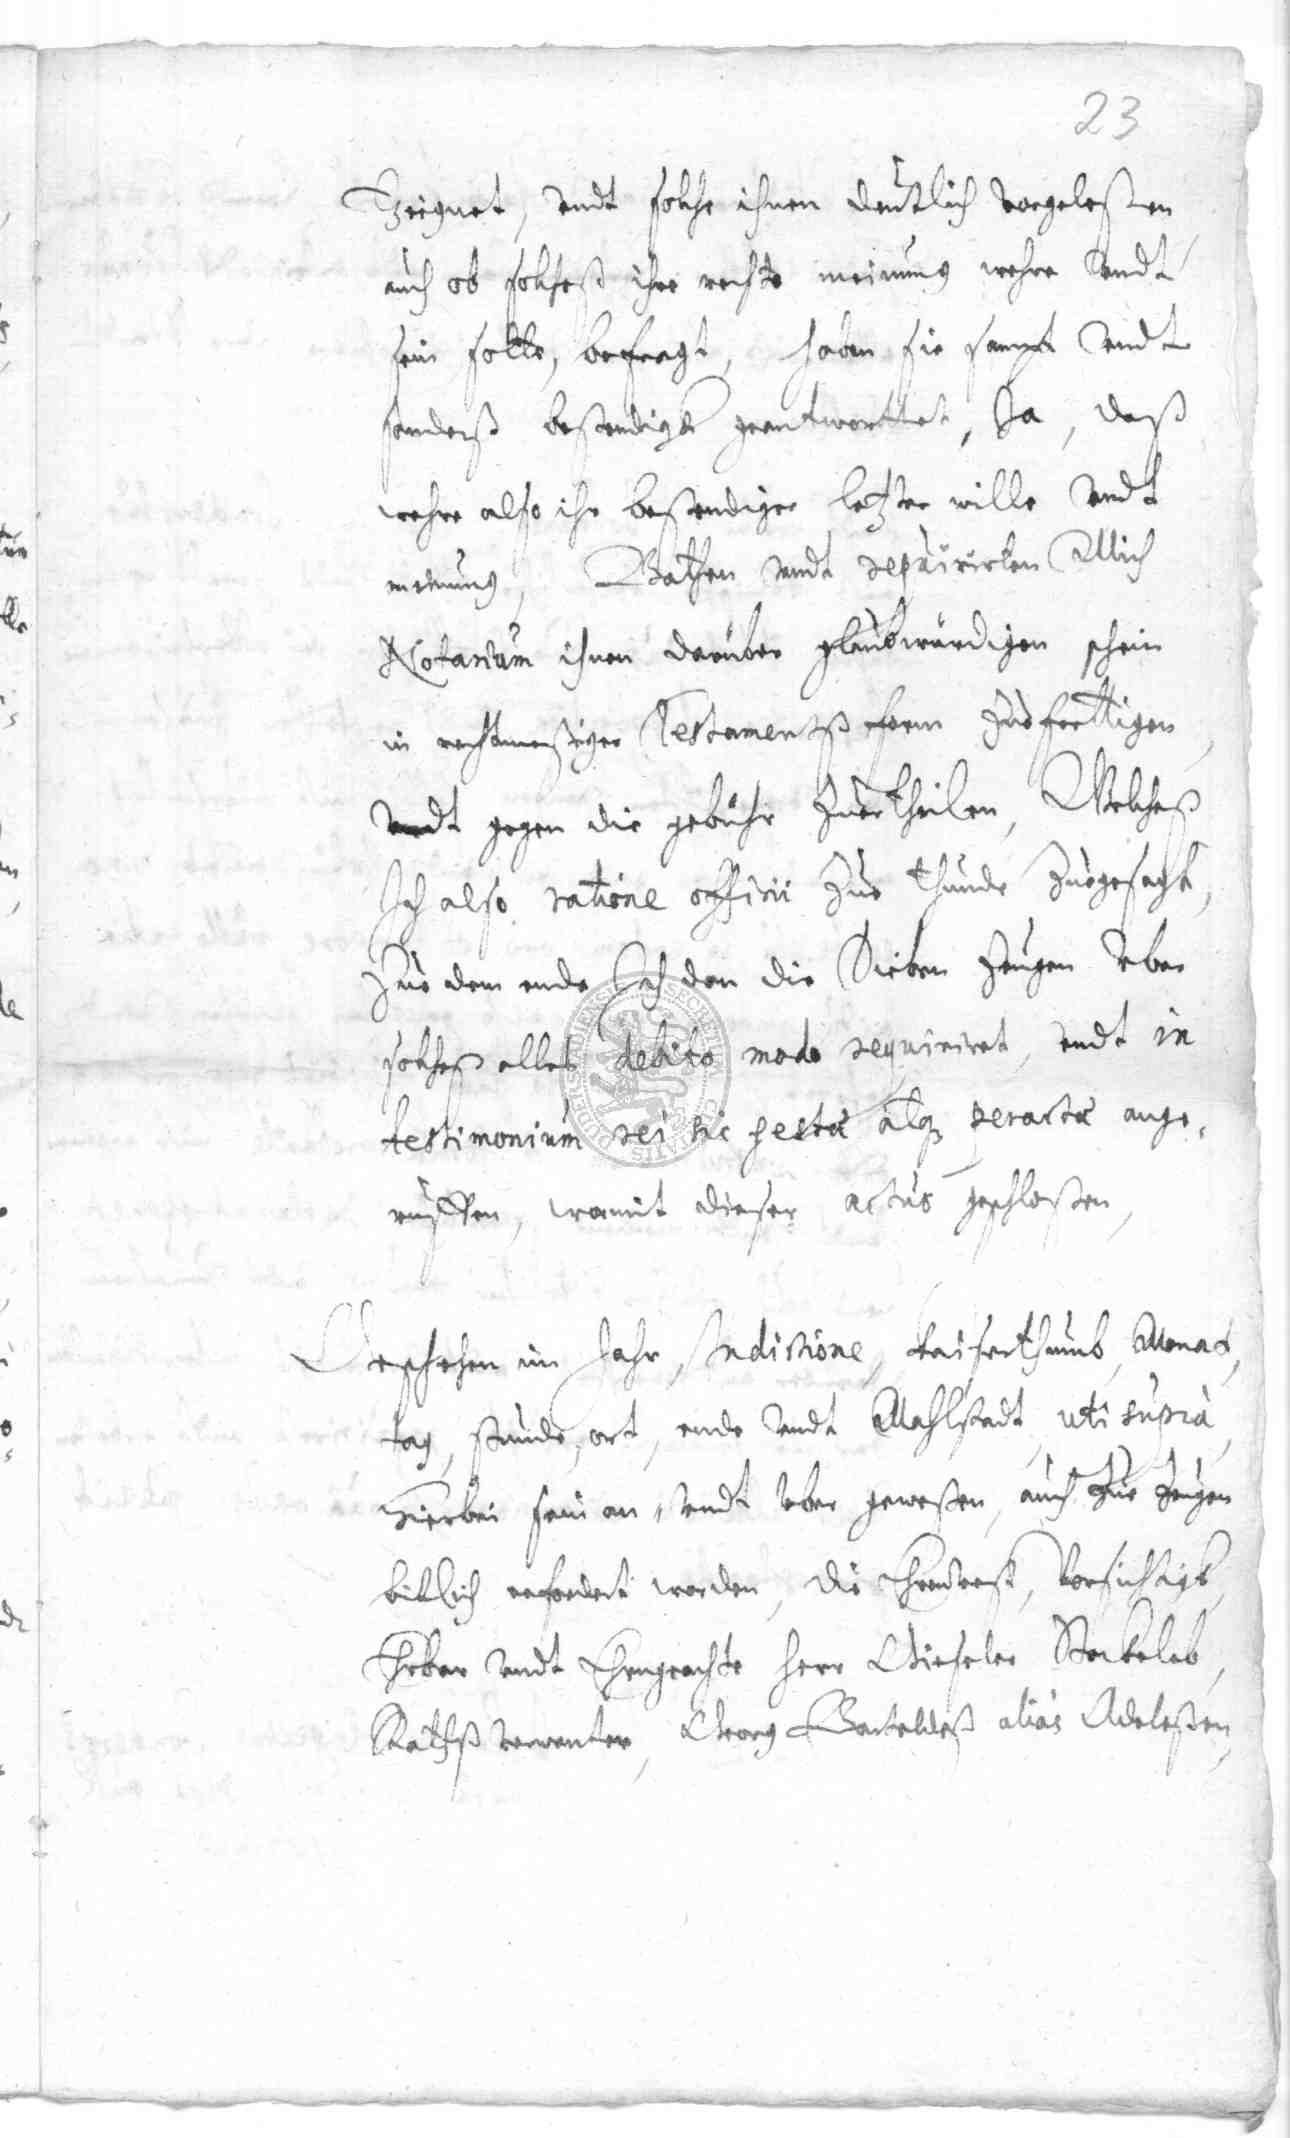 23
Zeignet, vndt solche ihnen deutlich vorgeleßen
auch ob solcheß ihre rechte meinung wehre vndt
sein solte, befragt, haben sie sampt vndt
sonderß bestendigk geantworttet, Ja, daß
wehre also ihr bestendiger letzter wille vndt
meinung, Bathen vndt requirirten Mich
Notarium ihnen darüber glaubwürdigen schein
in rechtmeßiger Testamentß form Zuefertigen
vndt gegen die gebühr Zuertheilen, Welcheß
Ich also ratione officii Zue thunde Zuegesagt,
Zue dem ende Ich den die Sieben Zeugen vber
solcheß alles debito modo requiriret, vndt in
testimonium rei sic gestæ atq3 peractæ ange-
ruffen, womit dieser actus geschloßen,
Geschehen im Jahr, Indictione, Kaiserthumb, Monat,
tag, stunde, ort, ende vndt Mahlstadt, uti supra,
Hierbei sein an, vndt vber geweßen, auch Zue Zeugen
bitlich erfordert worden, die Ehrnvest, Vorsichtigk,
Erbar vndt Ehrngeachte Herr Gieseler Stakeleb,
Rathß verwanter, Georg Barteldeß alias Adeleßen,